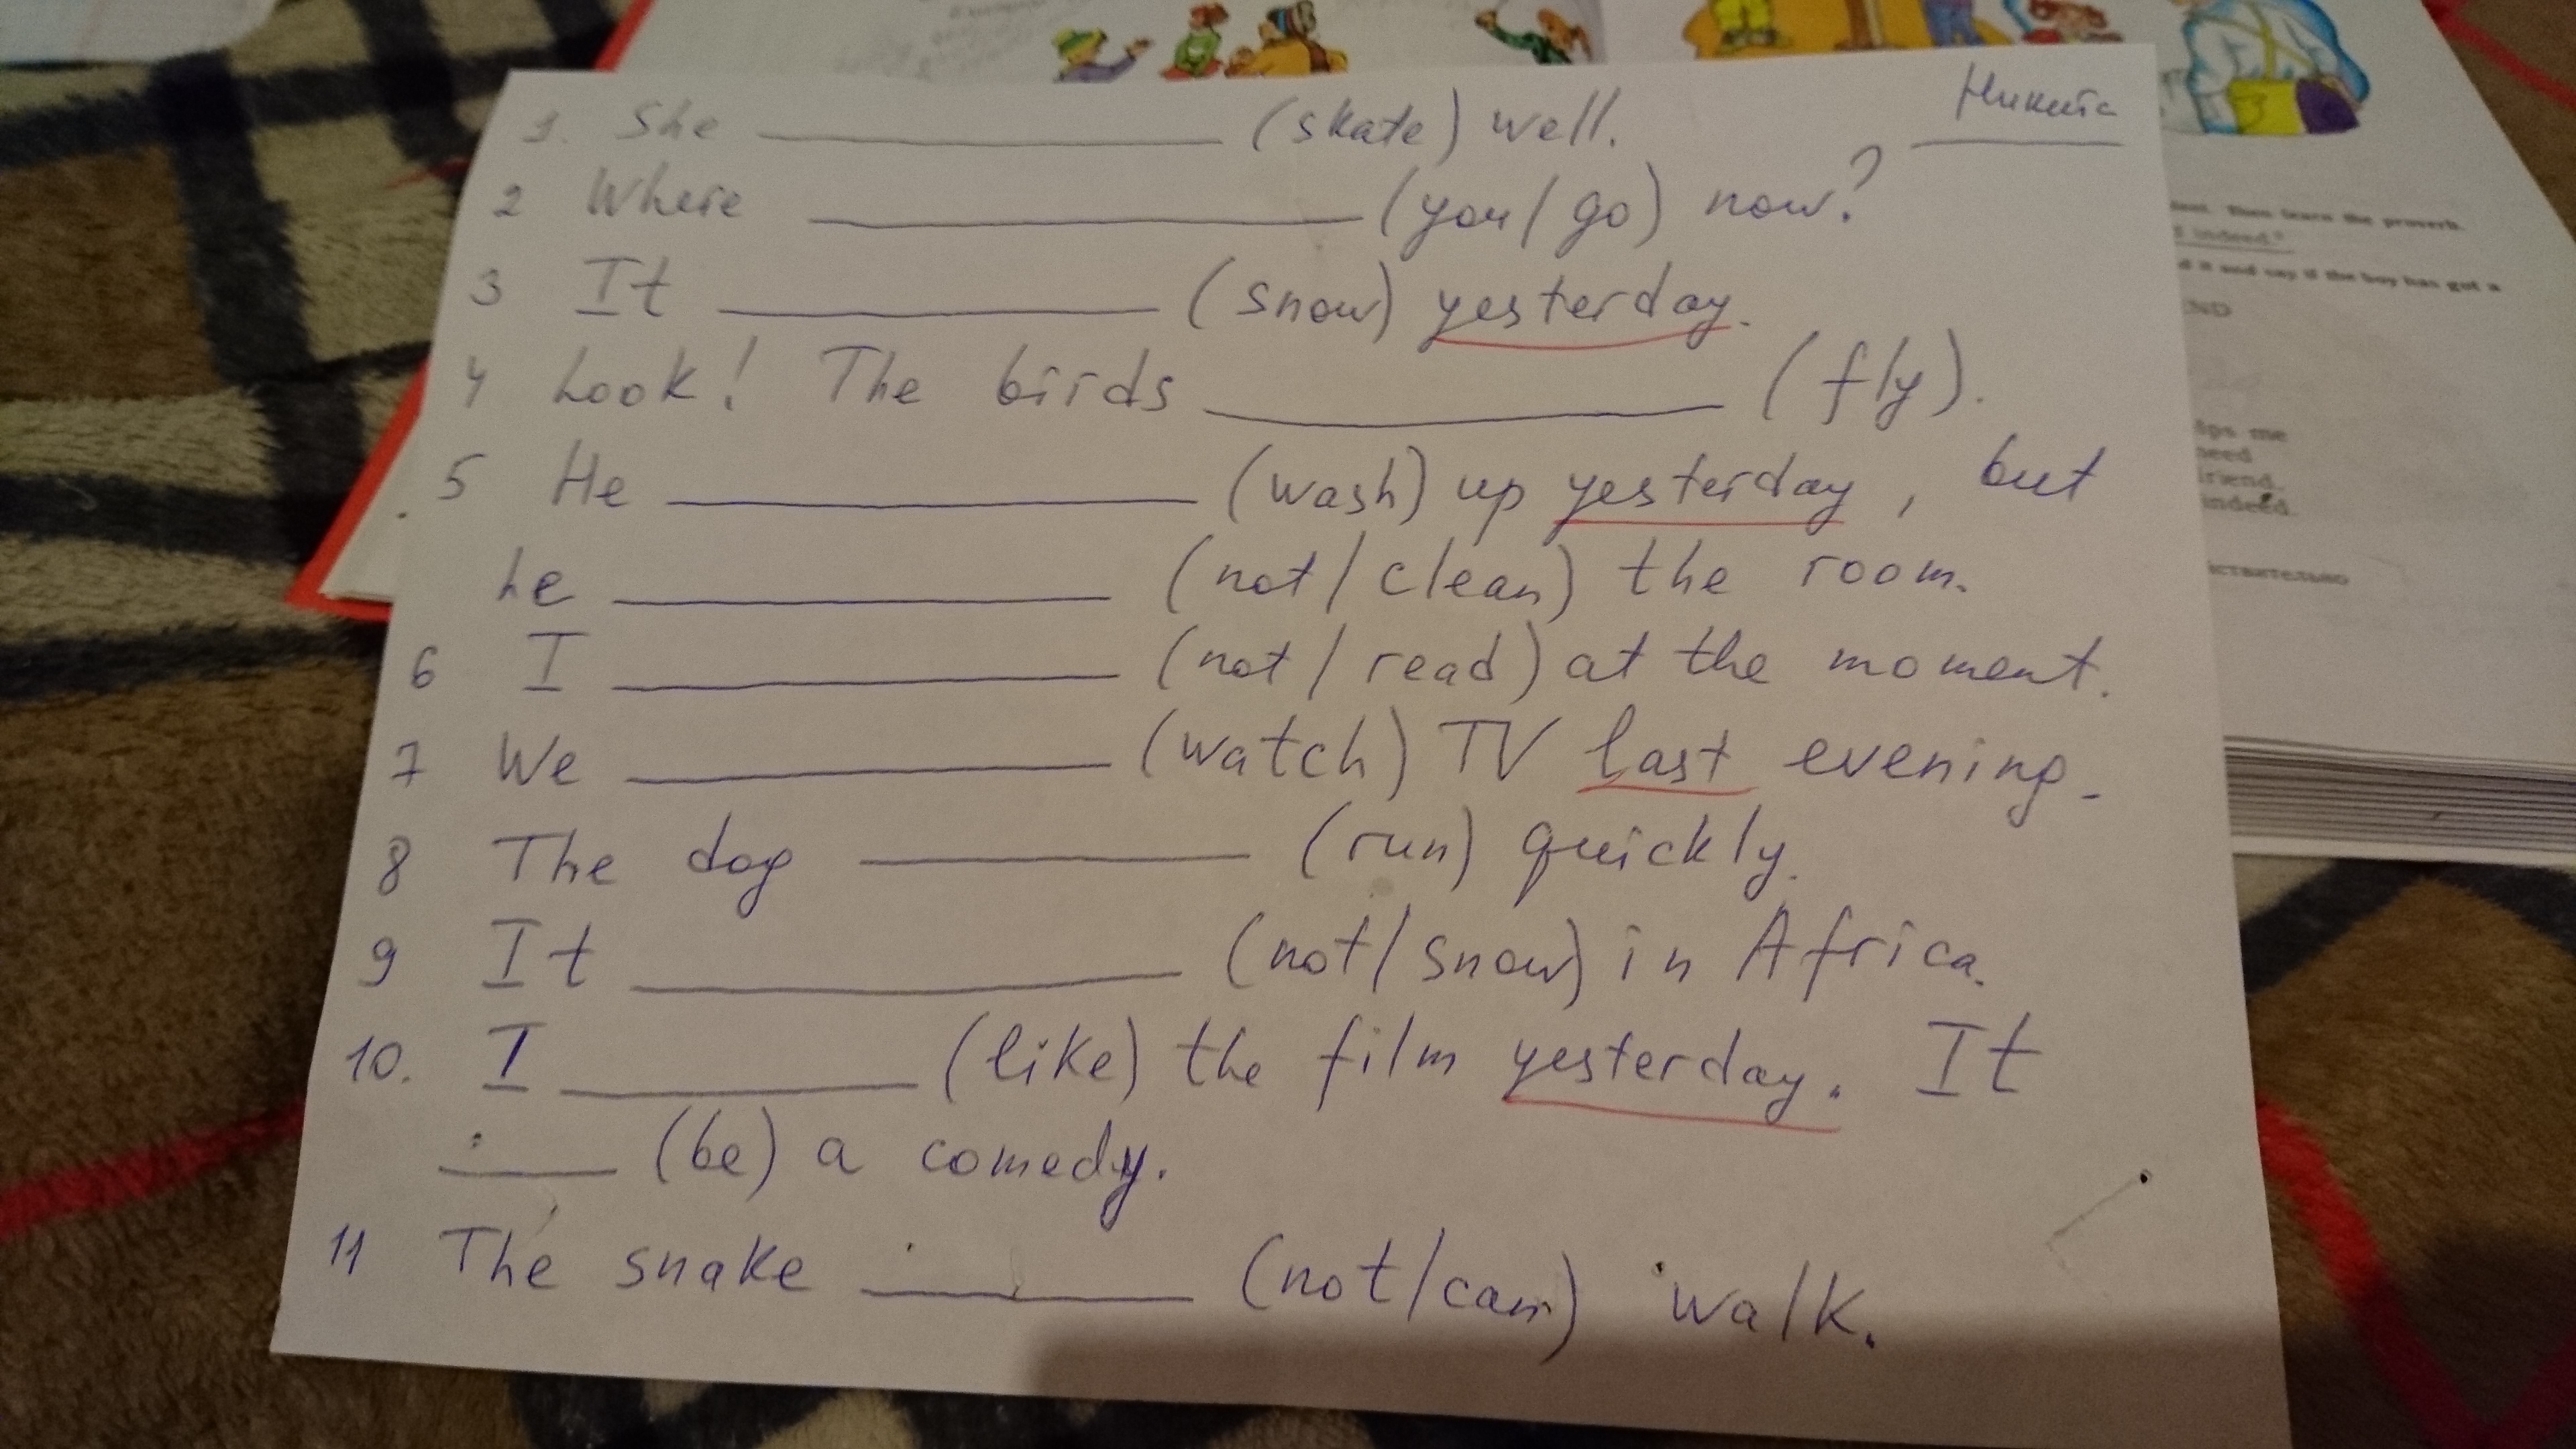 Никита
1. She ________ (skate) well.
2 Where ________ (you/go) now?
3 It ________ (snow) yesterday.
4 Look! The birds ________ (fly).
5 He ________ (wash) up yesterday, but
he ________ (not/clean) the room.
6 I ________ (not/read) at the moment.
7 We ________ (watch) TV last evening.
8 The dog ________ (run) quickly.
9 It ________ (not/snow) in Africa.
10. I ________ (like) the film yesterday. It
____ (be) a comedy.
11 The snake ________ (not/can) walk.
Then learn the proverb.
indeed."
it and say if the boy has got a
me
need
friend.
indeed.